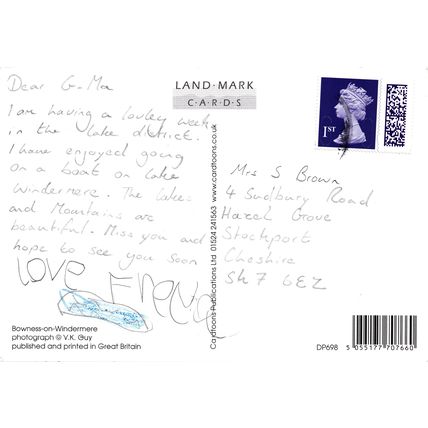 Dear G-Ma
I am having a lovley week
in the lake district.
I have enjoyed going
on a boat on lake
Windermere. The lakes
and Mountains are
beautiful. Miss you and
hope to see you soon
LOVE
Bowness-on-Windermere
photograph © V.K. Guy
published and printed in Great Britain
LAND·MARK
C·A·R·D·S
Cardtoons Publications Ltd 01524 241563 www.cardtoons.co.uk
1ST
Mrs S Brown
4 Sudbury Road
Hazel Grove
Stockport
Cheshire
SK7 6EZ
DP698
5 055177 707660